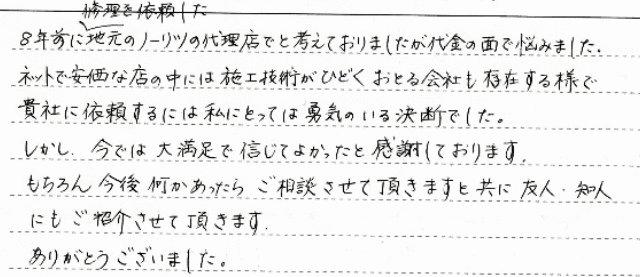 修理を依頼した
8年前に地元のノーリツの代理店でと考えておりましたが代金の面で悩みました。
ネットで安価な店の中には施工技術がひどくおとる会社も存在する様で
貴社に依頼するには私にとっては勇気のいる決断でした。
しかし、今では大満足で信じてよかったと感謝しております。
もちろん今後何かあったらご相談させて頂きますと共に友人・知人
にもご紹介させて頂きます。
ありがとうございました。